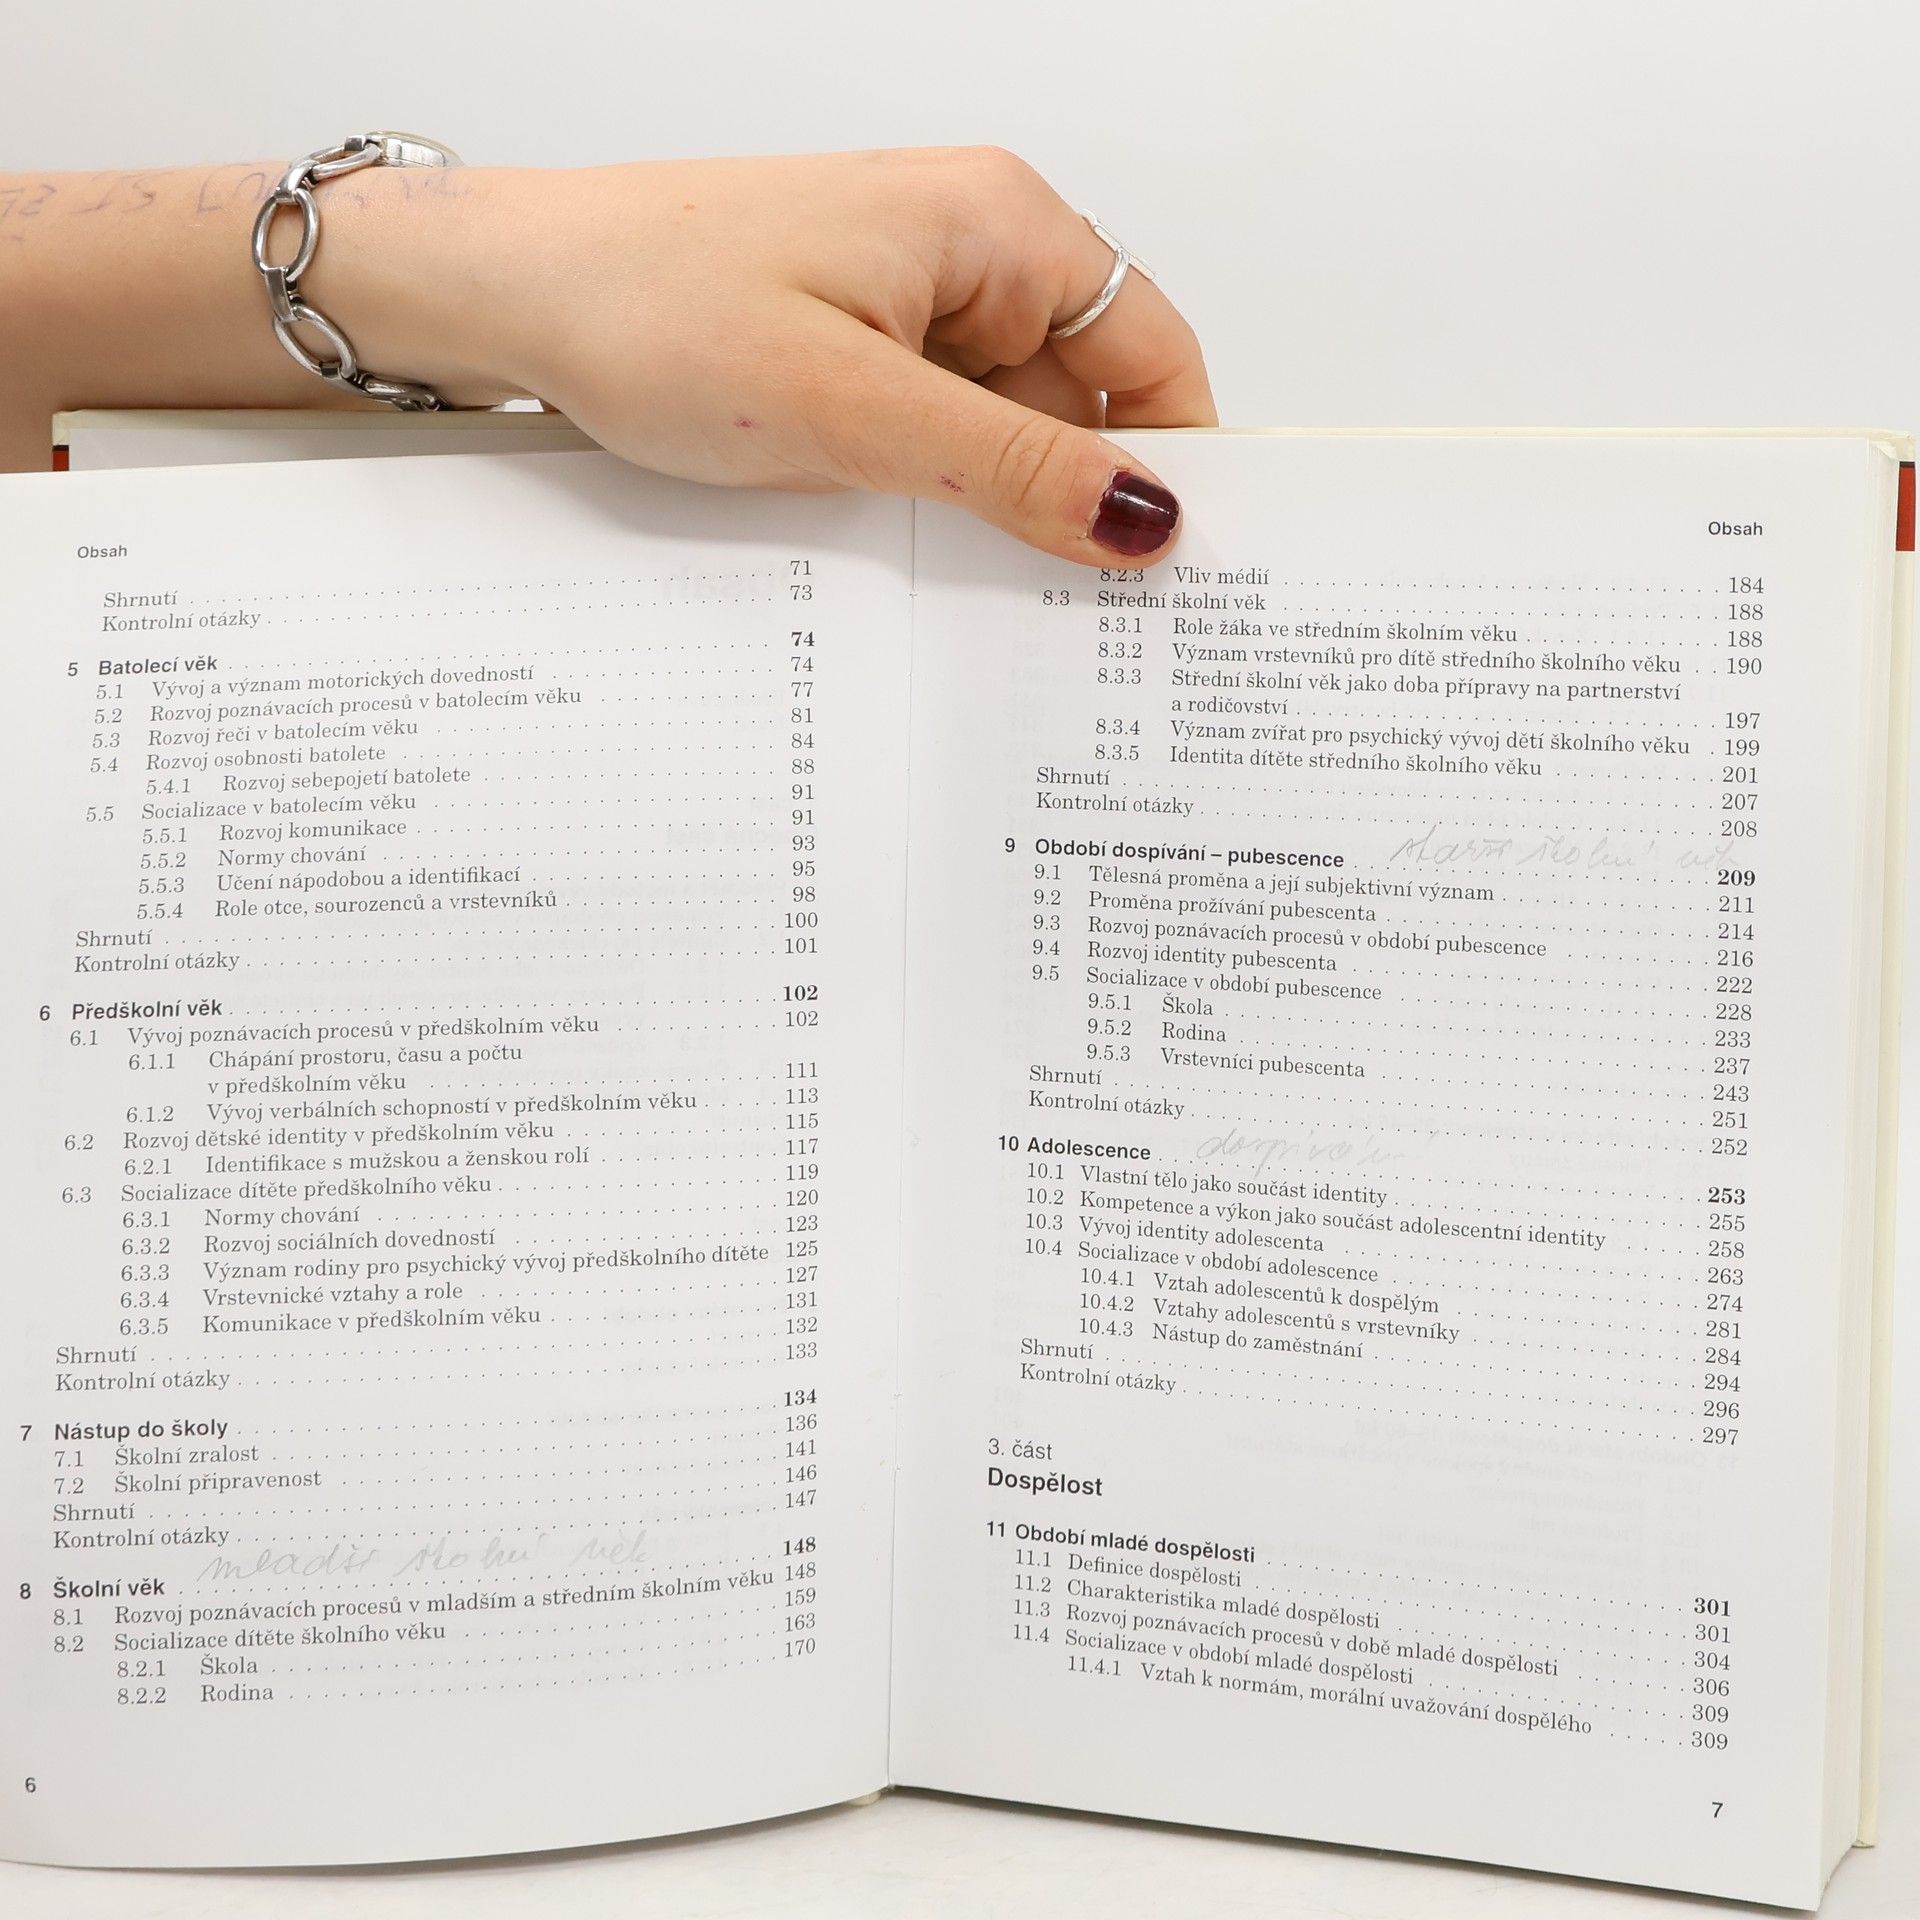 Obsah
Shrnutí 71
Kontrolní otázky 73
5 Batolecí věk 74
5.1 Vývoj a význam motorických dovedností 74
5.2 Rozvoj poznávacích procesů v batolecím věku 77
5.3 Rozvoj řeči v batolecím věku 81
5.4 Rozvoj osobnosti batolete 84
5.4.1 Rozvoj sebepojetí batolete 88
5.5 Socializace v batolecím věku 91
5.5.1 Rozvoj komunikace 91
5.5.2 Normy chování 93
5.5.3 Učení nápodobou a identifikací 95
5.5.4 Role otce, sourozenců a vrstevníků 98
Shrnutí 100
Kontrolní otázky 101
6 Předškolní věk 102
6.1 Vývoj poznávacích procesů v předškolním věku 102
6.1.1 Chápání prostoru, času a počtu
v předškolním věku 111
6.1.2 Vývoj verbálních schopností v předškolním věku 113
6.2 Rozvoj dětské identity v předškolním věku 115
6.2.1 Identifikace s mužskou a ženskou rolí 117
6.3 Socializace dítěte předškolního věku 119
6.3.1 Normy chování 120
6.3.2 Rozvoj sociálních dovedností 123
6.3.3 Význam rodiny pro psychický vývoj předškolního dítěte 125
6.3.4 Vrstevnické vztahy a role 127
6.3.5 Komunikace v předškolním věku 131
Shrnutí 132
Kontrolní otázky 133
7 Nástup do školy 134
7.1 Školní zralost 136
7.2 Školní připravenost 141
Shrnutí 146
Kontrolní otázky 147
mladší školní věk
8 Školní věk 148
8.1 Rozvoj poznávacích procesů v mladším a středním školním věku 148
8.2 Socializace dítěte školního věku 159
8.2.1 Škola 163
8.2.2 Rodina 170
6
Obsah
8.2.3 Vliv médií 184
8.3 Střední školní věk 188
8.3.1 Role žáka ve středním školním věku 188
8.3.2 Význam vrstevníků pro dítě středního školního věku 190
8.3.3 Střední školní věk jako doba přípravy na partnerství
a rodičovství 197
8.3.4 Význam zvířat pro psychický vývoj dětí školního věku 199
8.3.5 Identita dítěte středního školního věku 201
Shrnutí 207
Kontrolní otázky 208
starší školní věk
9 Období dospívání – pubescence 209
9.1 Tělesná proměna a její subjektivní význam 211
9.2 Proměna prožívání pubescenta 214
9.3 Rozvoj poznávacích procesů v období pubescence 216
9.4 Rozvoj identity pubescenta 222
9.5 Socializace v období pubescence 228
9.5.1 Škola 233
9.5.2 Rodina 237
9.5.3 Vrstevníci pubescenta 243
Shrnutí 251
Kontrolní otázky 252
dospívání
10 Adolescence 253
10.1 Vlastní tělo jako součást identity 255
10.2 Kompetence a výkon jako součást adolescentní identity 258
10.3 Vývoj identity adolescenta 263
10.4 Socializace v období adolescence 274
10.4.1 Vztah adolescentů k dospělým 281
10.4.2 Vztahy adolescentů s vrstevníky 284
10.4.3 Nástup do zaměstnání 294
Shrnutí 296
Kontrolní otázky 297
3. část
Dospělost
11 Období mladé dospělosti 301
11.1 Definice dospělosti 301
11.2 Charakteristika mladé dospělosti 304
11.3 Rozvoj poznávacích procesů v době mladé dospělosti 306
11.4 Socializace v období mladé dospělosti 309
11.4.1 Vztah k normám, morální uvažování dospělého 309
7